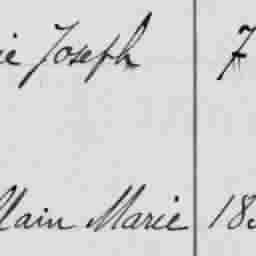 ie Joseph 7
lain Marie 18